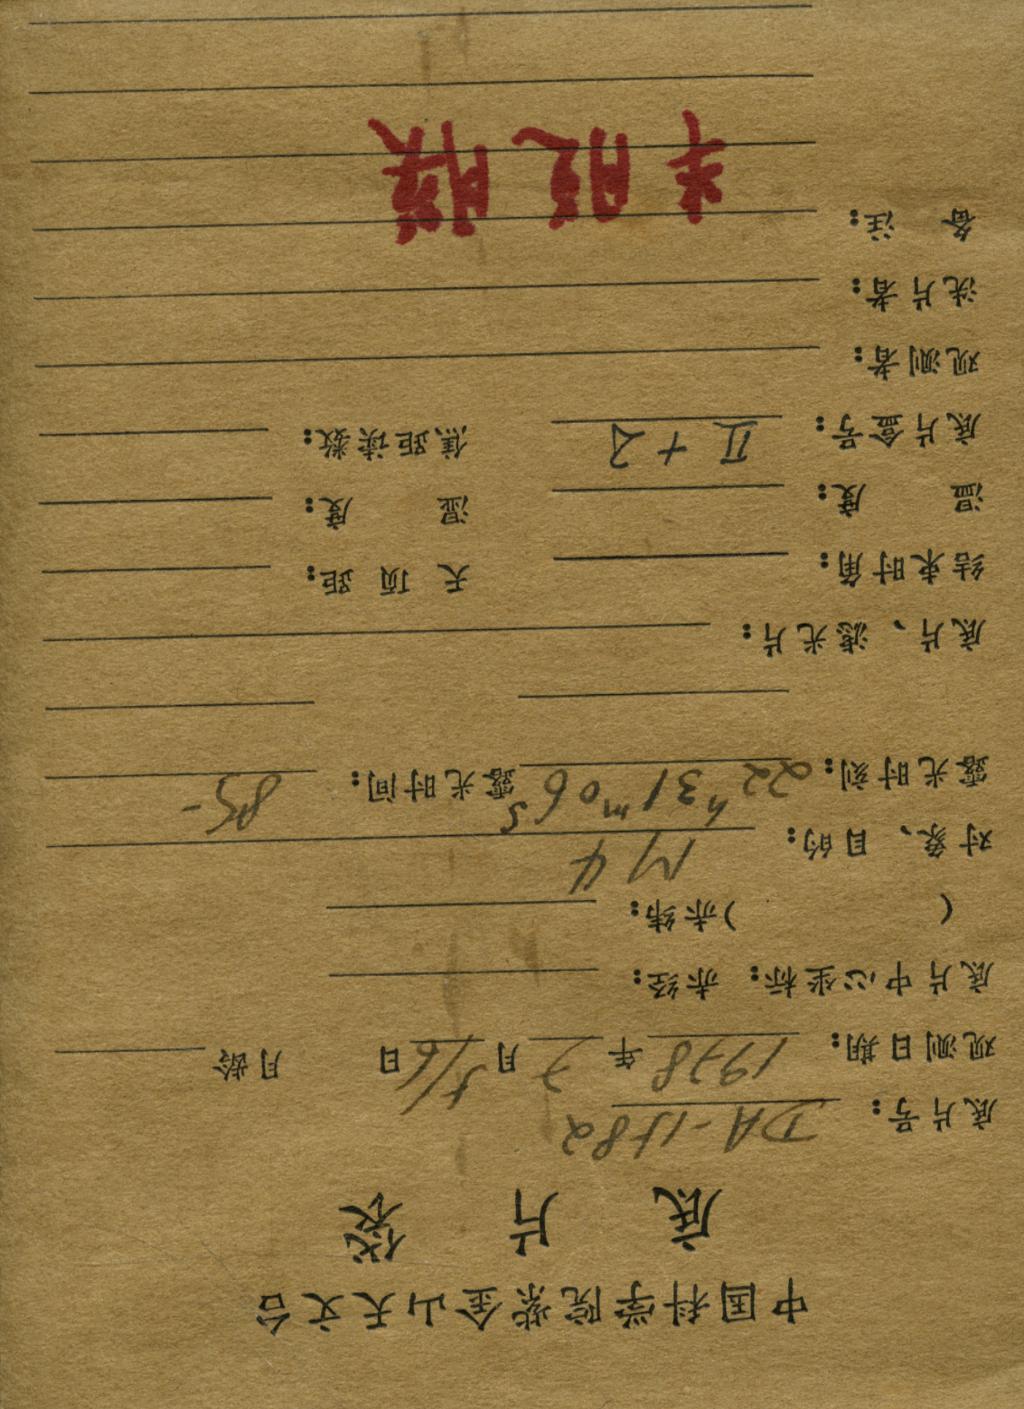 中国科学院紫金山天文台
底片袋
底片号: DA-1582
观测日期: 1978年7月5/6日 月龄
底片中心坐标: 赤经:
( )赤纬:
对象、目的: M4
露光时刻: 22h31m06s 露光时间: 85-
底片、滤光片:
结束时角: 天顶距:
温度: 湿度:
底片盒号: II+2 焦距读数:
观测者:
洗片者:
备注:
半脱膜